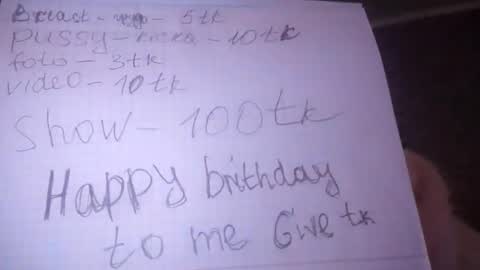 Breast - - 5 tk
pussy - - 10 tk
foto - 3 tk
video - 10 tk
Show - 100 tk
Happy brithday
to me Give tk